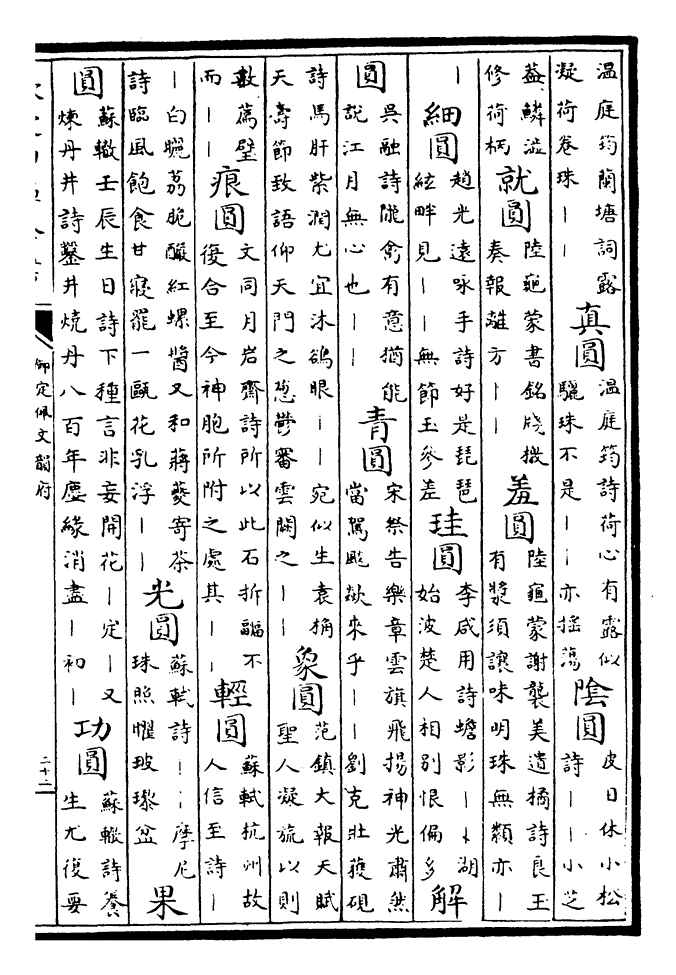 溫庭筠蘭塘詞露
凝荷卷珠丨丨
真圓
溫庭筠詩荷心有露似
驪珠不是丨丨亦揺蕩
陰圓
皮日休小松
詩丨丨小芝
蓋鱗溢
修荷柄
就圓
陸龜蒙書銘牋檄
奏報離方丨丨
羞圓
陸龜蒙謝襲美遺橘詩良玉
有漿須讓味明珠無纇亦丨
丨
細圓
趙光遠咏手詩好是琵琶
絃畔見丨丨無節玉參差
珪圓
李咸用詩蟾影丨丨湖
始波楚人相别恨偏多
解
圓
吳融詩隴禽有意猶能
說江月無心也丨丨
青圓
宋祭告樂章雲旗飛揚神光肅然
當駕飈歘來乎丨丨劉克壯硯
詩馬肝紫潤尤宜沐鴝眼丨丨宛似生袁桷
天壽節致語仰天門之蔥鬱審雲闕之丨丨
象圓
范鎮大報天賦
聖人凝旒以則
數薦璧
而丨丨
痕圓
文同月岩齋詩所以此石折不
復合至今神胞所附之處其丨丨
輕圓
蘇軾杭州故
人信至詩丨
丨白曬荔脆釅紅螺醬又和蔣夔寄茶
詩臨風飽食甘寢罷一甌花乳浮丨丨
光圓
蘇軾詩丨丨摩尼
珠照耀玻瓈盆
果
圓
蘇轍壬辰生日詩下種言非妄開花丨定丨又
煉丹井詩鑿井燒丹八百年塵緣消盡丨初丨
功圓
蘇轍詩養
生尤復要
御定佩文韻府
二十二